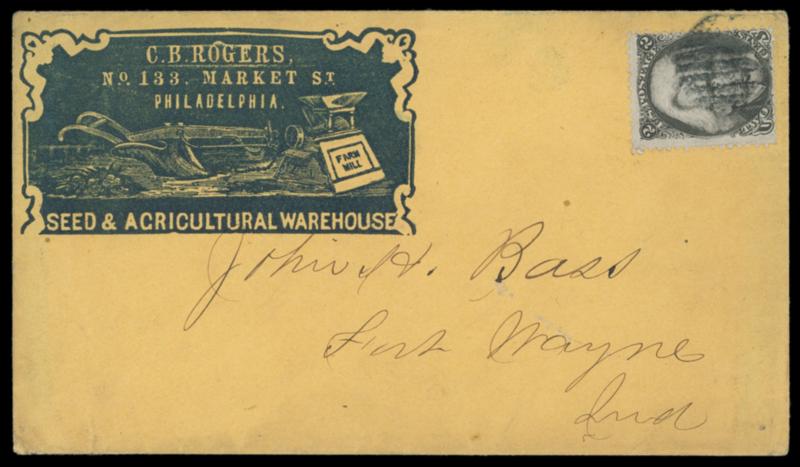 C.B. ROGERS,
No. 133. MARKET ST.
PHILADELPHIA.
FARM
MILL
SEED & AGRICULTURAL WAREHOUSE
John H. Bass
Fort Wayne
Ind